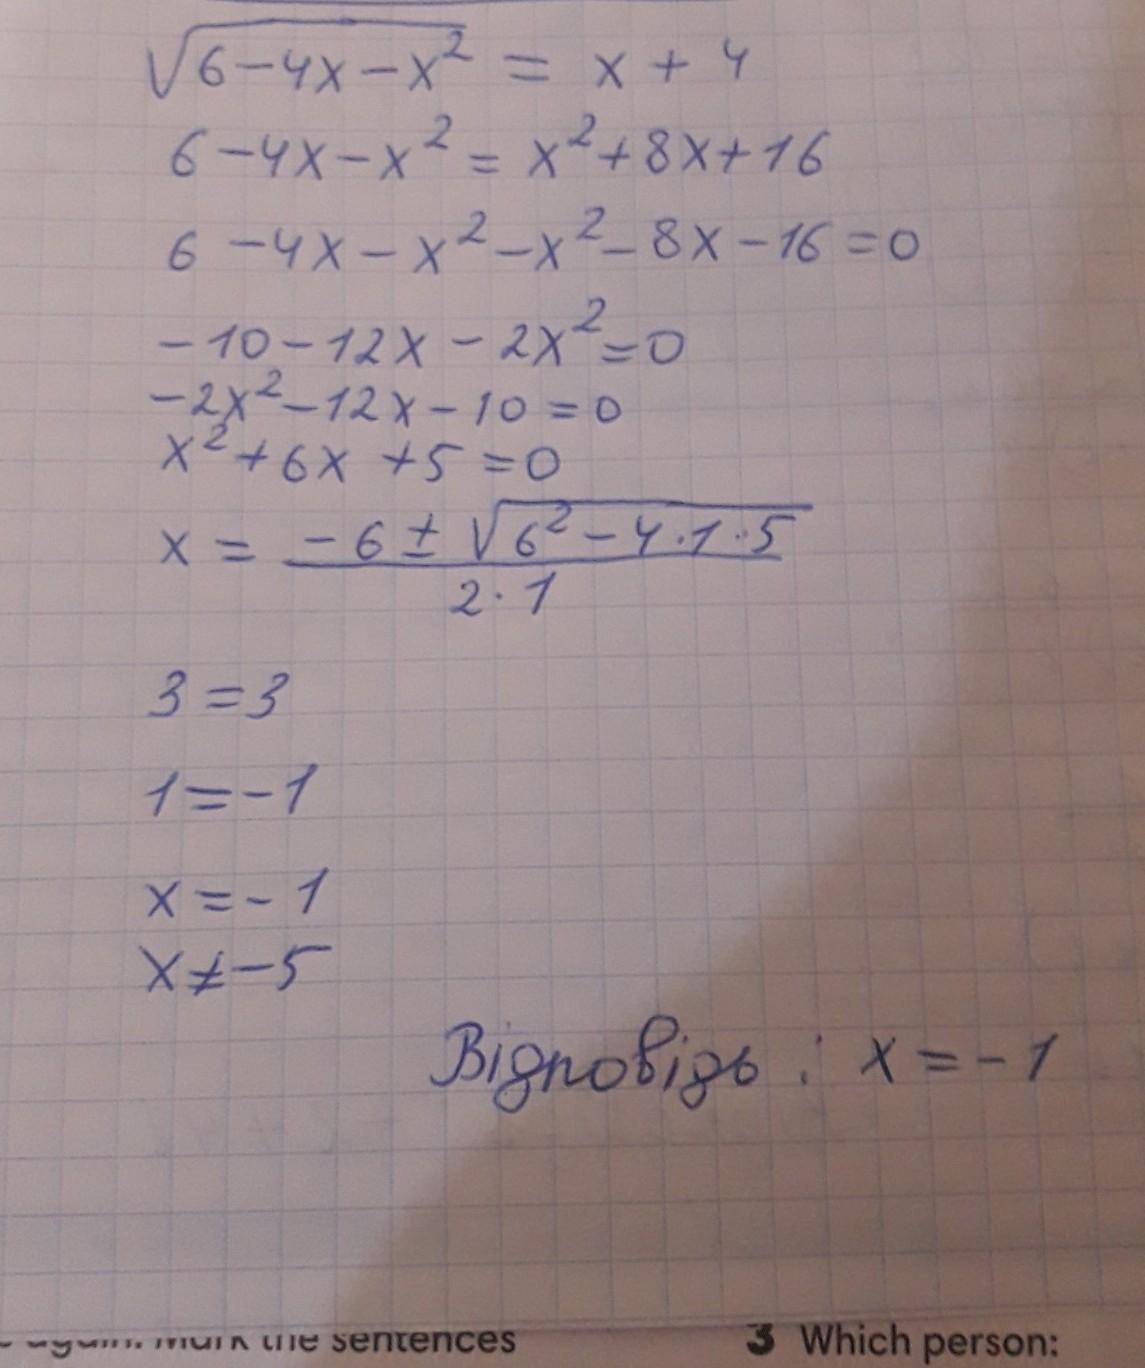 √(6-4x-x²) = x + 4
6-4x-x² = x²+8x+16
6 -4x-x²-x²-8x-16=0
-10-12x-2x²=0
-2x²-12x-10=0
x²+6x+5=0
x = (-6±√(6²-4·1·5))/(2·1)
3=3
1=-1
x=-1
x≠-5
Відповідь: x=-1
again. Mark the sentences
3 Which person: